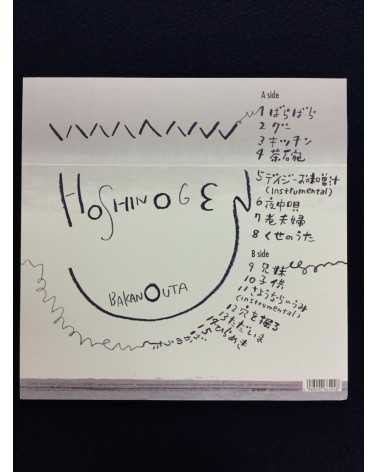 HOSHINO GEN
BAKANOUTA
A side
1 ばらばら
2 グー
3 キッチン
4 茶碗
5 デイジーお味噌汁
(instrumental)
6 夜中唄
7 老夫婦
8 くせのうた
B side
9 兄妹
10 子供
11 さようならのうみ
(instrumental)
12 穴を掘る
13 ただいま
14 ひらめき